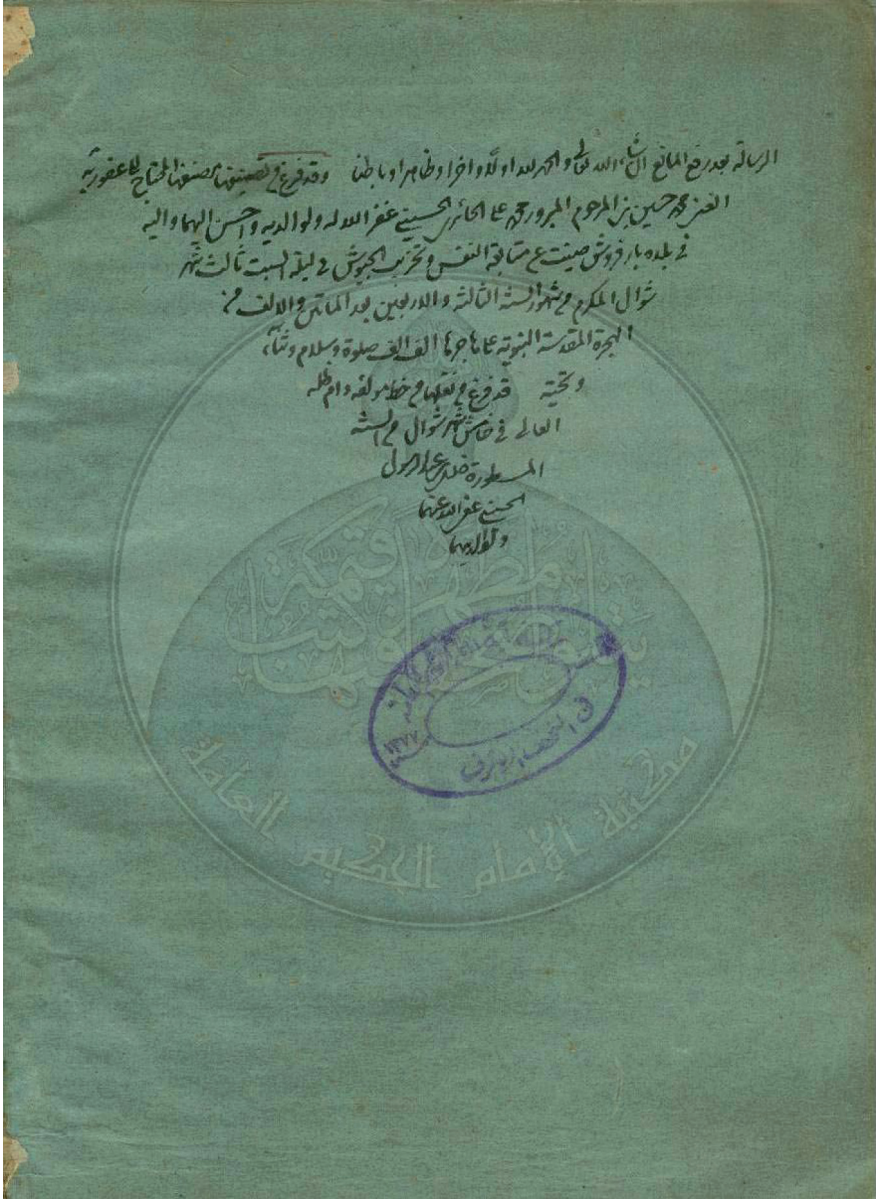 الرسالة بعد رفع المانع ان شاء الله تعالى والحمد لله اولا واخرا وظاهرا وباطنا وقد فرغ من تصنيفها مصنفها المحتاج الى عفو ربه
الغنى محمد حسين بن المرحوم المبرور محمد على الحائرى الحسينى غفر الله له ولوالديه واحسن اليهما واليه
فى بلده بارفروش صينت عن متابعة النفس وتخريب الجيوش فى ليلة السبت ثالث شهر
شوال المكرم من شهور السنة الثالثة والاربعين بعد الماتين والالف من
الهجرة المقدسة النبوية على هاجرها الف الف صلوة وسلام وثناء
وتحية قد فرغ من نقلها من خط مولفه دام ظله
العالى فى شهر شوال من السنة
المسطورة عبد الرسول
الحسينى عفى الله عنهما
ولوالديهما
١٣٧٧
فى النجف الاشرف
مكتبة الإمام الحكيم العامة